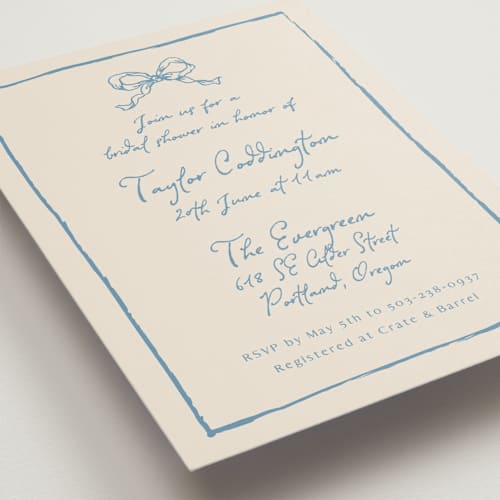 Join us for a
bridal shower in honor of
Taylor Coddington
20th June at 11am
The Evergreen
618 SE Alder Street
Portland, Oregon
RSVP by May 5th to 503-238-0937
Registered at Crate & Barrel